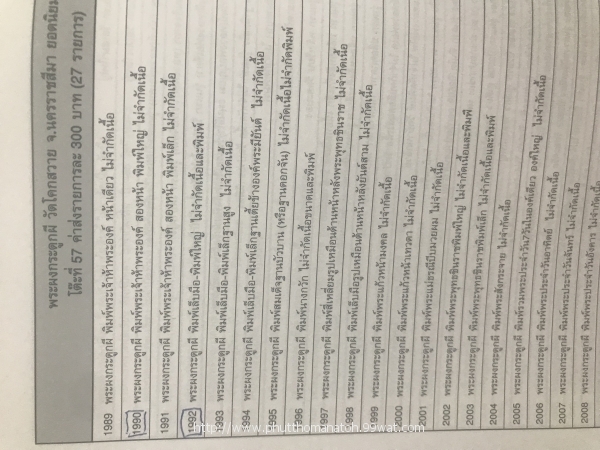 พระผงกระดูกผี วัดโคกสวาย จ.นครราชสีมา ยอดนิยม
โต๊ะที่ 57 ค่าส่งรายการละ 300 บาท (27 รายการ)
1989 พระผงกระดูกผี พิมพ์พระเจ้าห้าพระองค์ หน้าเดียว ไม่จำกัดเนื้อ
1990 พระผงกระดูกผี พิมพ์พระเจ้าห้าพระองค์ สองหน้า พิมพ์ใหญ่ ไม่จำกัดเนื้อ
1991 พระผงกระดูกผี พิมพ์พระเจ้าห้าพระองค์ สองหน้า พิมพ์เล็ก ไม่จำกัดเนื้อ
1992 พระผงกระดูกผี พิมพ์เล็บมือ-พิมพ์ใหญ่ ไม่จำกัดเนื้อและพิมพ์
1993 พระผงกระดูกผี พิมพ์เล็บมือ-พิมพ์เล็กฐานสูง ไม่จำกัดเนื้อ
1994 พระผงกระดูกผี พิมพ์เล็บมือ-พิมพ์เล็กฐานเตี้ยข้างองค์พระมียันต์ ไม่จำกัดเนื้อ
1995 พระผงกระดูกผี พิมพ์สมเด็จฐานบัวบาน (หรือฐานดอกจัน) ไม่จำกัดเนื้อไม่จำกัดพิมพ์
1996 พระผงกระดูกผี พิมพ์นางกวัก ไม่จำกัดเนื้อขนาดและพิมพ์
1997 พระผงกระดูกผี พิมพ์สี่เหลี่ยมรูปเหมือนด้านหน้าหลังพระพุทธชินราช ไม่จำกัดเนื้อ
1998 พระผงกระดูกผี พิมพ์เล็บมือรูปเหมือนด้านหน้าหลังยันต์สาม ไม่จำกัดเนื้อ
1999 พระผงกระดูกผี พิมพ์พระแก้วหน้ามงคล ไม่จำกัดเนื้อ
2000 พระผงกระดูกผี พิมพ์พระแก้วหน้าเทวดา ไม่จำกัดเนื้อ
2001 พระผงกระดูกผี พิมพ์พระแม่ธรณีบีบมวยผม ไม่จำกัดเนื้อ
2002 พระผงกระดูกผี พิมพ์พระพุทธชินราชพิมพ์ใหญ่ ไม่จำกัดเนื้อและพิมพ์
2003 พระผงกระดูกผี พิมพ์พระพุทธชินราชพิมพ์เล็ก ไม่จำกัดเนื้อและพิมพ์
2004 พระผงกระดูกผี พิมพ์พระสังกระจาย ไม่จำกัดเนื้อ
2005 พระผงกระดูกผี พิมพ์รวมพระประจำวัน7วันในองค์เดียว องค์ใหญ่ ไม่จำกัดเนื้อ
2006 พระผงกระดูกผี พิมพ์พระประจำวันอาทิตย์ ไม่จำกัดเนื้อ
2007 พระผงกระดูกผี พิมพ์พระประจำวันจันทร์ ไม่จำกัดเนื้อ
2008 พระผงกระดูกผี พิมพ์พระประจำวันอังคาร ไม่จำกัดเนื้อ
http://www.phutthomanatoh.99wat.com